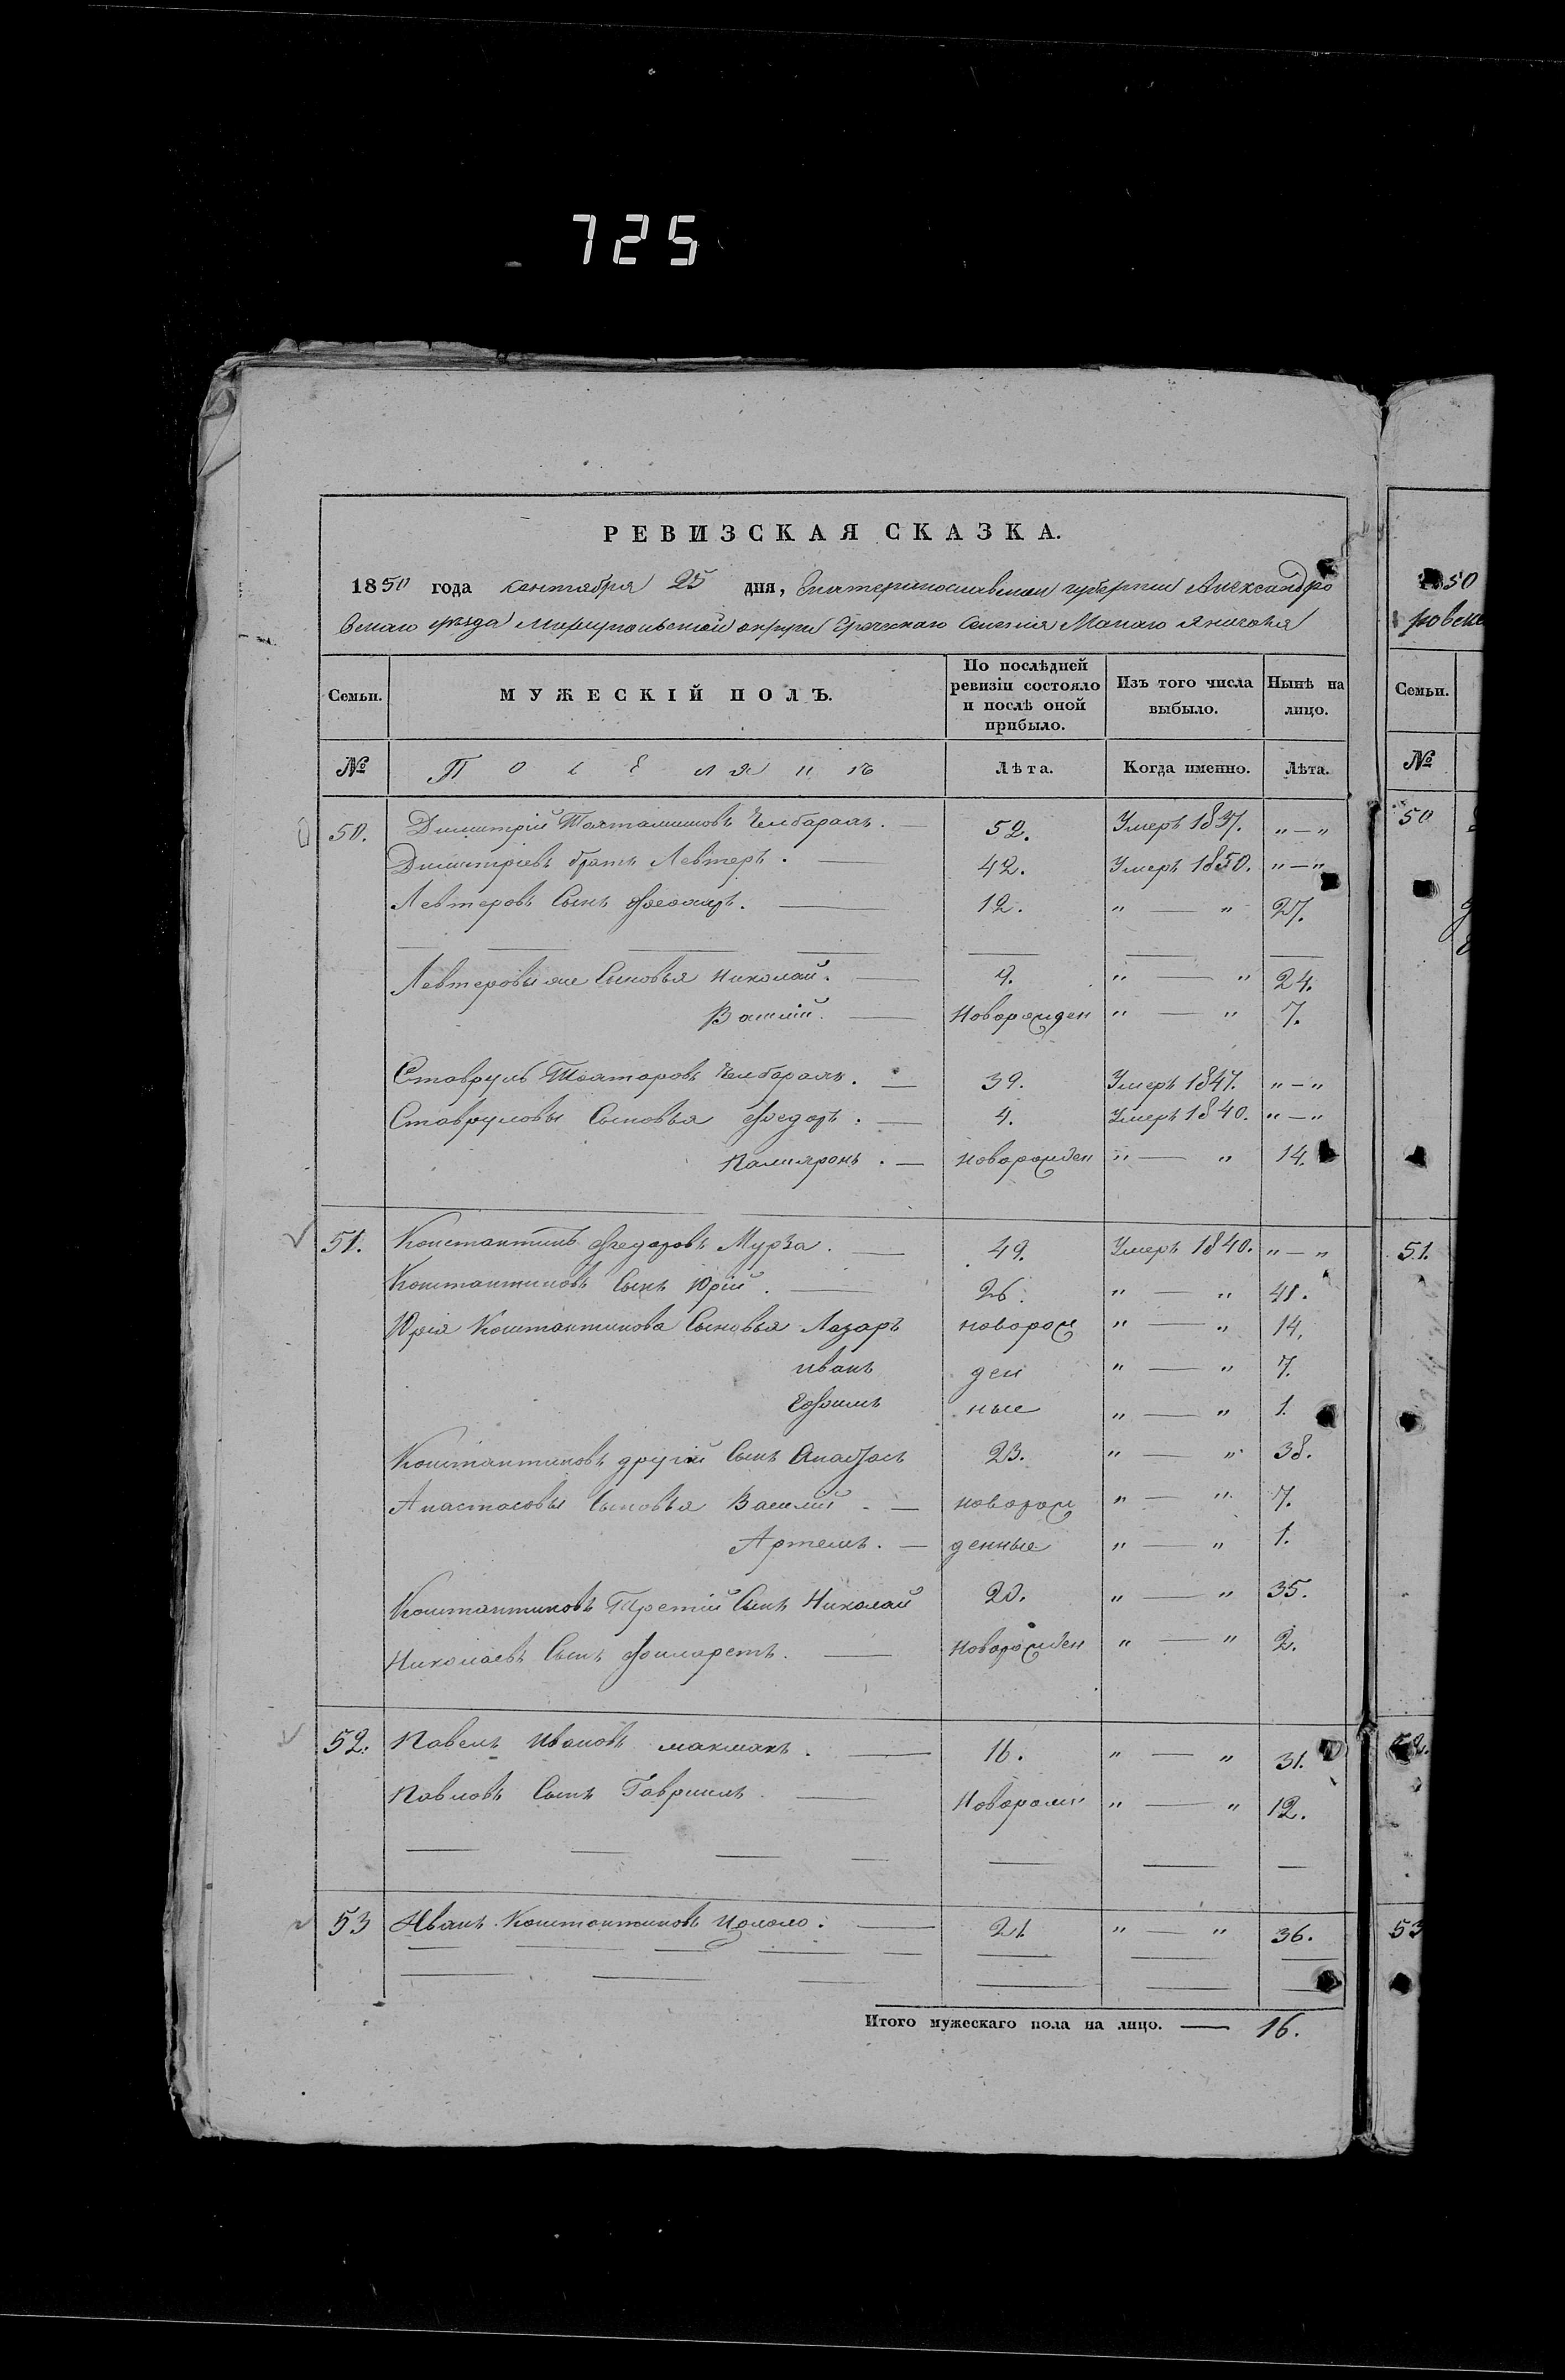 725
РЕВИЗСКАЯ СКАЗКА.
1850 года сентября 25 дня, Екатеринославской губерніи Александро
вскаго уѣзда Маріупольскаго округа Греческаго Селенія Малаго Янисоля
Семьи. МУЖЕСКІЙ ПОЛЪ. По послѣдней ревизіи состояло и послѣ оной прибыло. Изъ того числа выбыло. Нынѣ на лицо.
№ Поселянъ Лѣта. Когда именно. Лѣта.
50. Димитрій Челбарахъ. — 52. Умеръ 1837. „ — „
Димитріевъ братъ Левтеръ. — 42. Умеръ 1850. „ — „
Левтеровъ Сынъ — 12. „ — „ 27.
Левтеровы же Сыновья Николай. — 9. „ — „ 24.
Василій. — Новорожден „ — „ 7.
Ставруль Челбарахъ. — 39. Умеръ 1847. „ — „
Ставруловы Сыновья Федоръ. — 4. Умеръ 1840. „ — „
. — новорожден „ — „ 14.
51. Константинъ Федоровъ Мурза. — 49. Умеръ 1840. „ — „
Константиновъ Сынъ Юрій. — 26. „ — „ 41.
Юрія Константинова Сыновья Лазарь новорож „ — „ 14.
Иванъ ден „ — „ 7.
Ефимъ ные „ — „ 1.
Константиновъ другій Сынъ Анастасъ 23. „ — „ 38.
Анастасовы Сыновья Василій — новорож „ — „ 7.
Артемъ. — денные „ — „ 1.
Константиновъ Третій Сынъ Николай 20. „ — „ 35.
Николаевъ Сынъ Филаретъ. — Новорожден „ — „ 2.
52. Павелъ Ивановъ . — 16. „ — „ 31.
Павловъ Сынъ Гавріилъ. — Новорож „ — „ 12.
53 Иванъ Константиновъ . — 21 „ — „ 36.
Итого мужескаго пола на лицо. — 16.
50
ровск
Семьи.
№
50
51.
52.
53